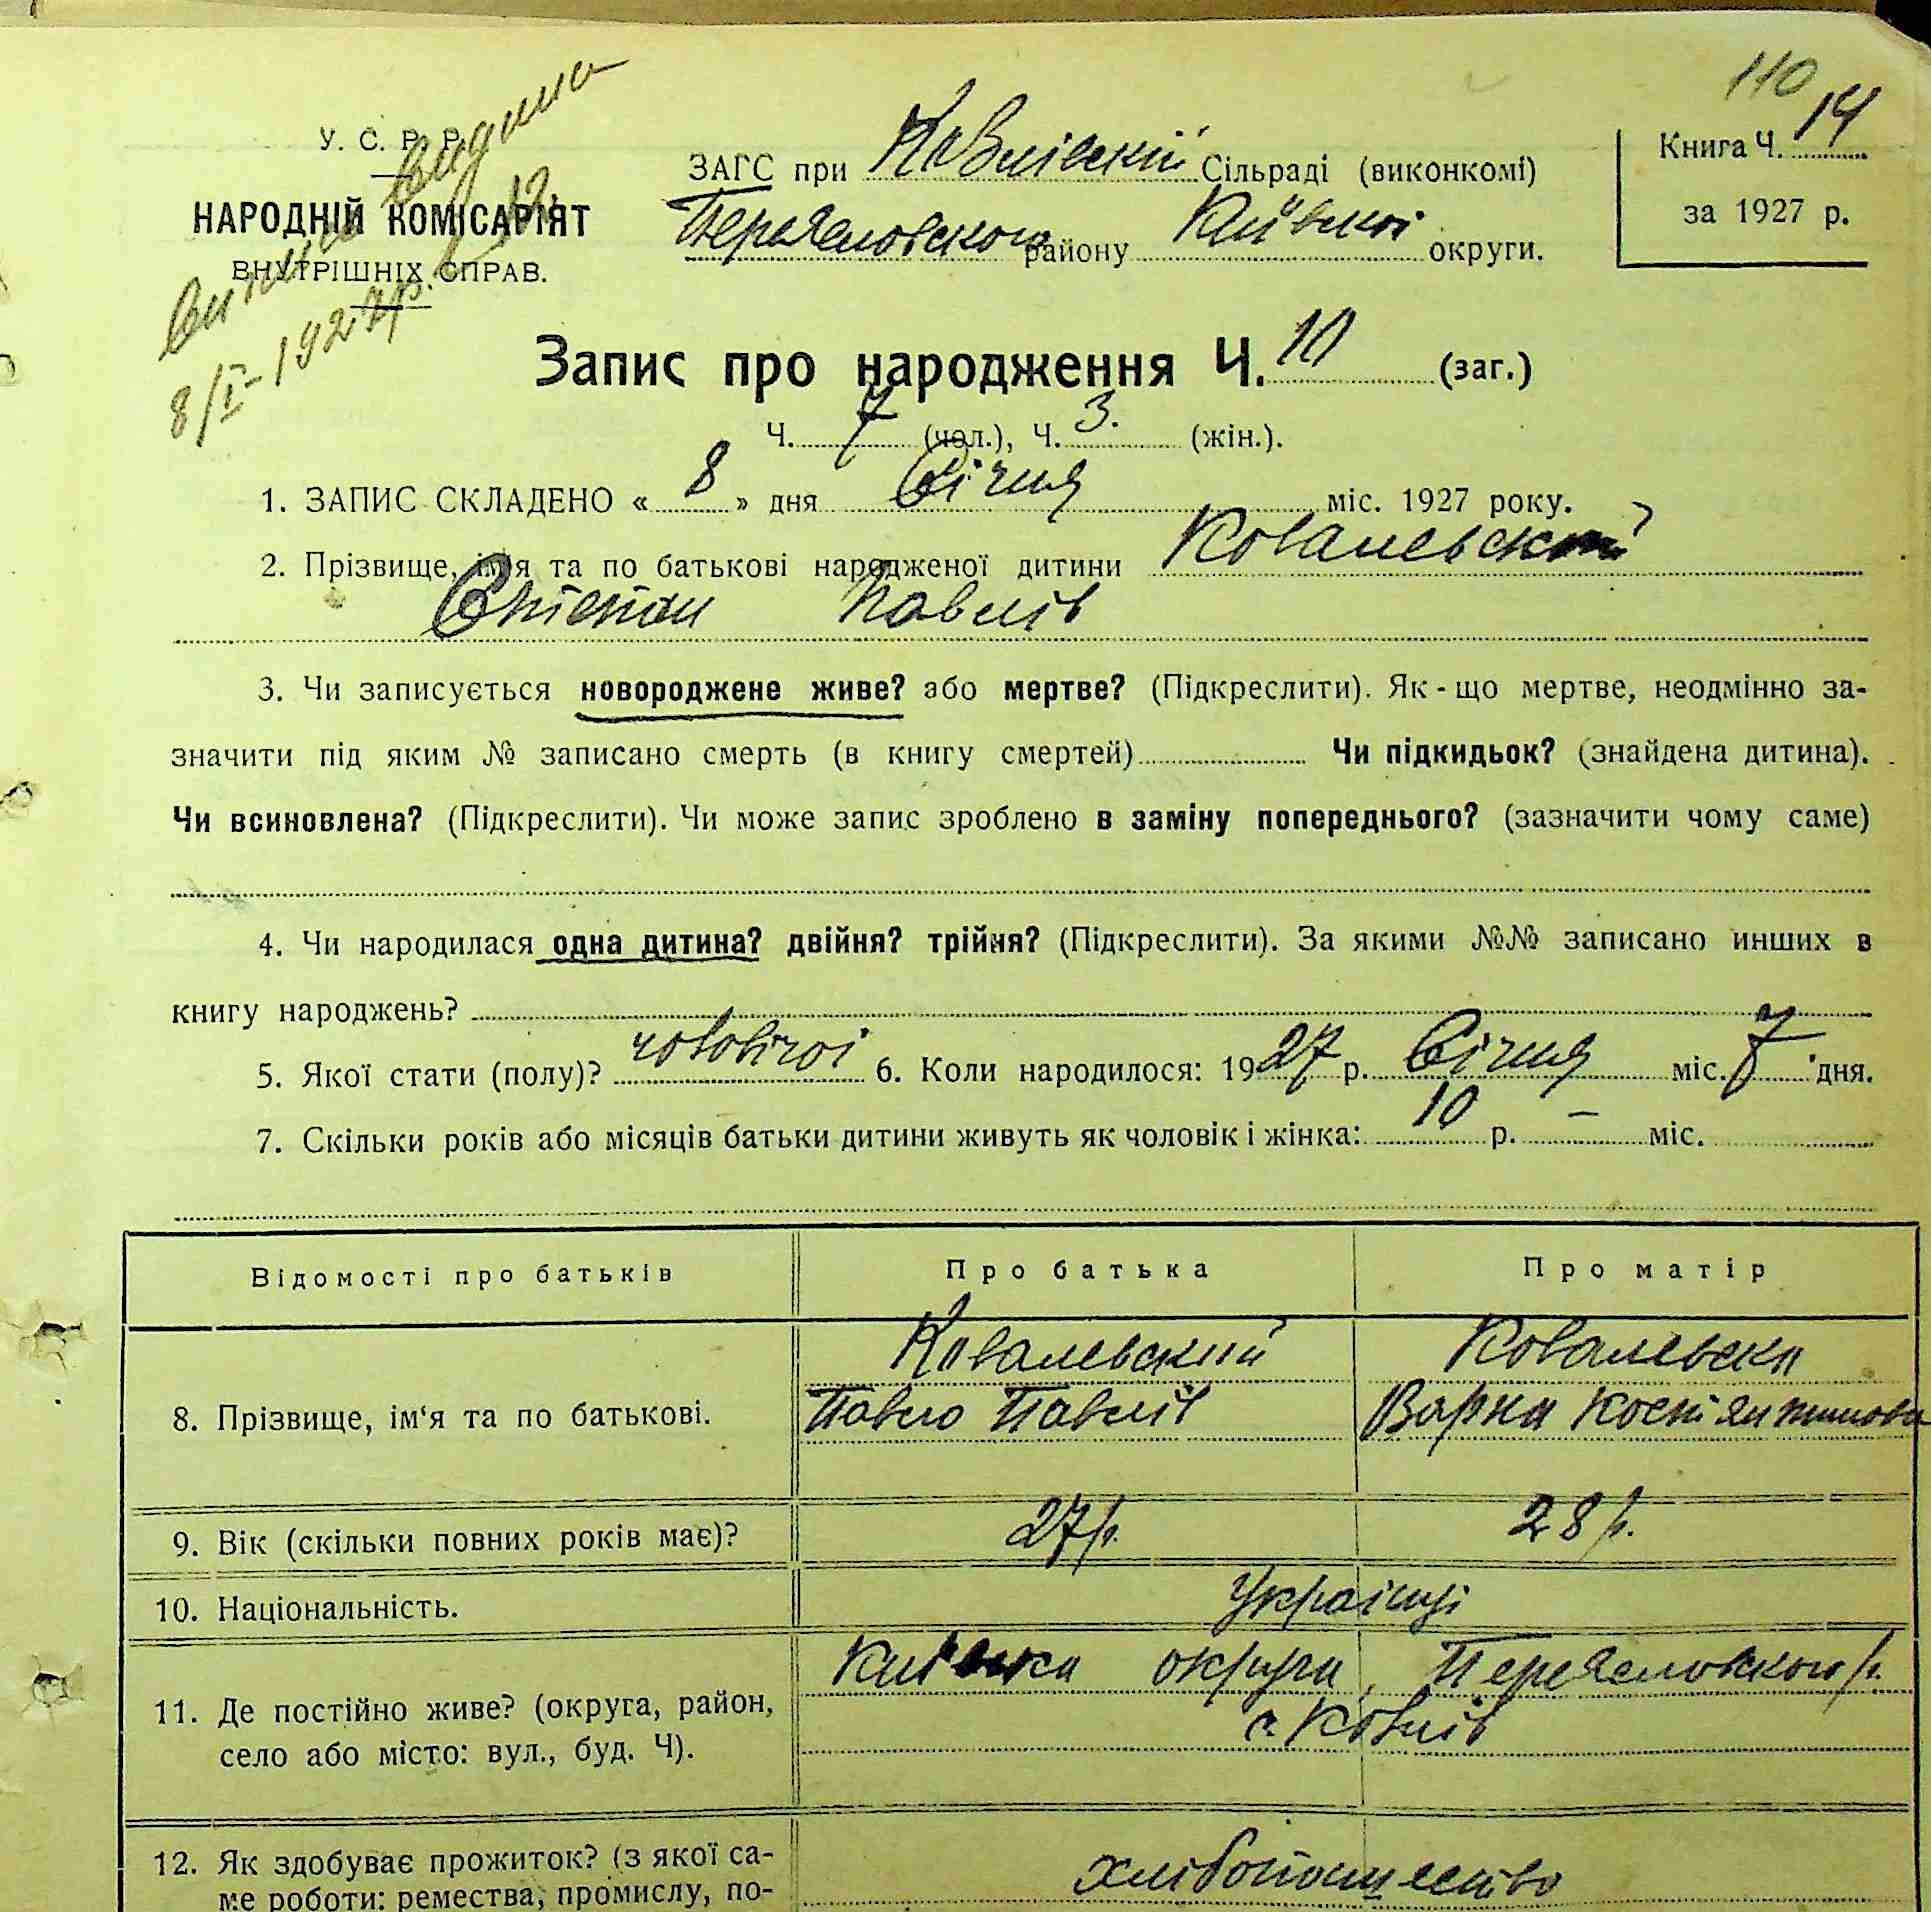 110
У. С. Р. Р.
НАРОДНІЙ КОМІСАРІЯТ
ВНУТРІШНІХ СПРАВ.
видана
8/I-1927р.
ЗАГС при Ковлівській Сільраді (виконкомі)
Переяславского району Київської округи.
Книга Ч. 14
за 1927 р.
Запис про народження Ч. 10 (заг.)
Ч. 7 (чол.), Ч. 3. (жін.).
1. ЗАПИС СКЛАДЕНО « 8 » дня Січня міс. 1927 року.
2. Прізвище, ім'я та по батькові народженої дитини Ковалевский
Степан Павлів
3. Чи записується новороджене живе? або мертве? (Підкреслити). Як-що мертве, неодмінно за-
значити під яким № записано смерть (в книгу смертей) Чи підкидьок? (знайдена дитина).
Чи всиновлена? (Підкреслити). Чи може запис зроблено в заміну попереднього? (зазначити чому саме)
4. Чи народилася одна дитина? двійня? трійня? (Підкреслити). За якими №№ записано инших в
книгу народжень?
5. Якої стати (полу)? чоловічої 6. Коли народилося: 1927 р. Січня міс. 7 дня.
7. Скільки років або місяців батьки дитини живуть як чоловік і жінка: 10 р. — міс.
Відомості про батьків Про батька Про матір
8. Прізвище, ім'я та по батькові.
Ковалевский
Павло Павлів
Ковалевска
Варка Костянтинова
9. Вік (скільки повних років має)? 27 р. 28 р.
10. Національність. Українці
11. Де постійно живе? (округа, район,
село або місто: вул., буд. Ч).
Київска округа, Переяславского р.
с. Ковлів
12. Як здобуває прожиток? (з якої са-
ме роботи: ремества, промислу, по-
хлібопашество